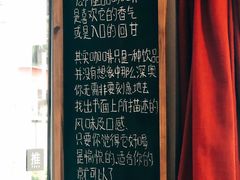 是喜欢它的香气
或是入口的回甘
其实咖啡只是一种饮品
并没有想象中那么深奥
你无需非要刻意地去
找出书面上所描述的
风味及口感
只要你觉得它好喝
是愉悦的.适合你的
就可以了
推